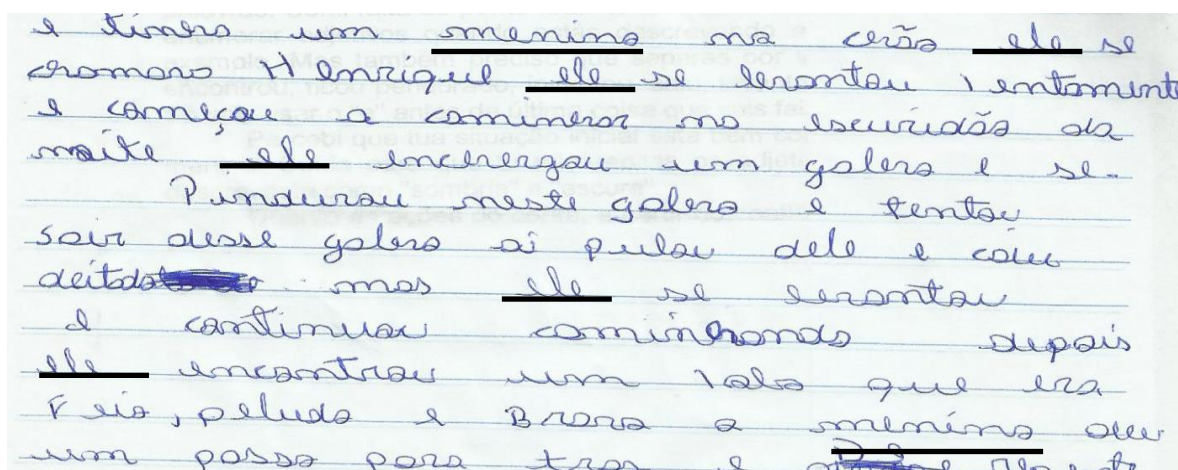 e tinha um menino no cerão ele se
cramaro Henrique ele se levantou lentamente
e começou a caminhar na escuridão da
noite ele enchergou um galho e se
Pindurou neste galho e tentou
sair desse galho ai pulou dele e caiu
deitado mas ele se levantou
e continuou caminhando depois
ele encontrou um lobo que era
Feio, peludo e Bravo o menino deu
um passo para tras e